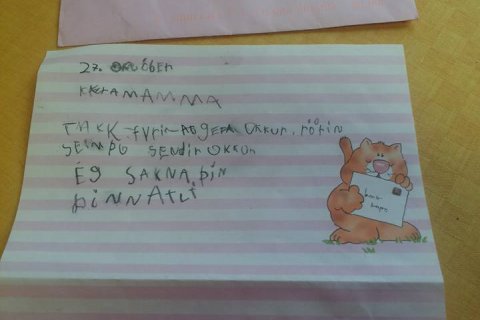 27. OKTÓBER
KÆRA MAMMA
TAKK fyrir AÐ GEFA OKKUR FÖTIN
SEM ÞÚ SENDIR OKKUR
ÉG SAKNA ÞÍN
ÞINN ATLI